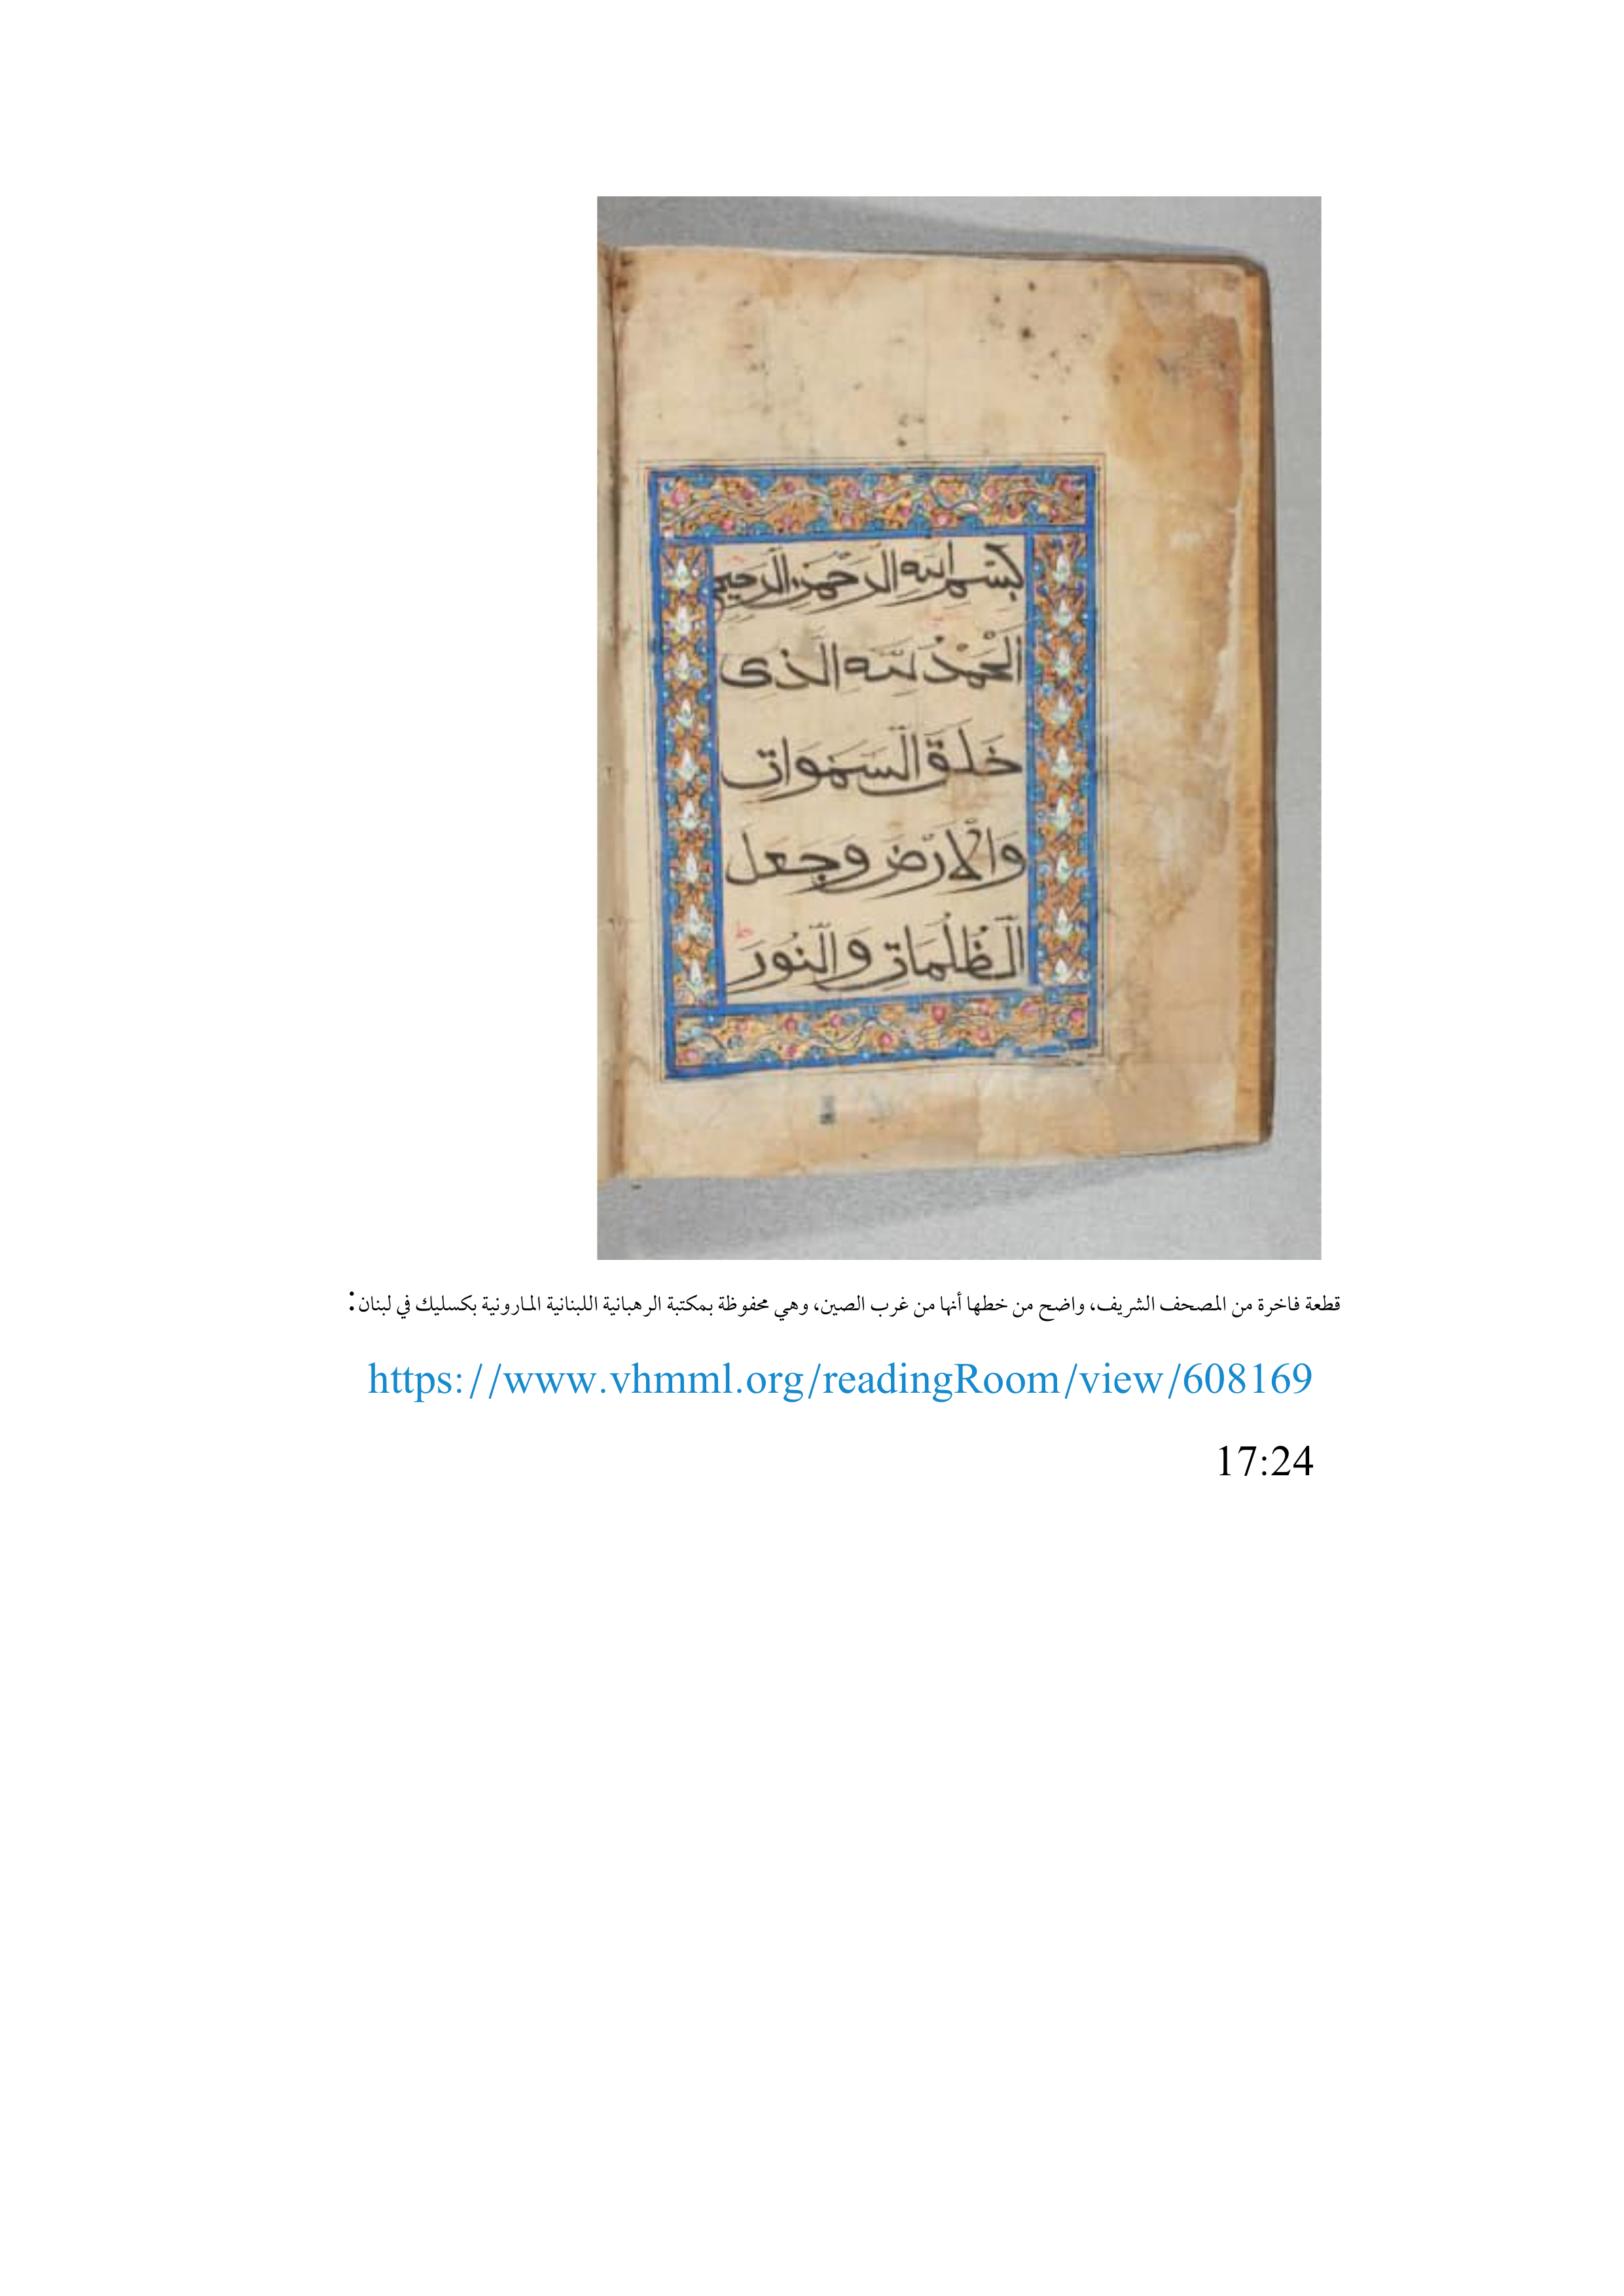 بسم الله الرحمن الرحيم
الحمد لله الذى
خلق السموات
والارض وجعل
الظلمات والنور
ط
قطعة فاخرة من المصحف الشريف، واضح من خطها أنها من غرب الصين، وهي محفوظة بمكتبة الرهبانية اللبنانية المارونية بكسليك في لبنان:
https://www.vhmml.org/readingRoom/view/608169
17:24